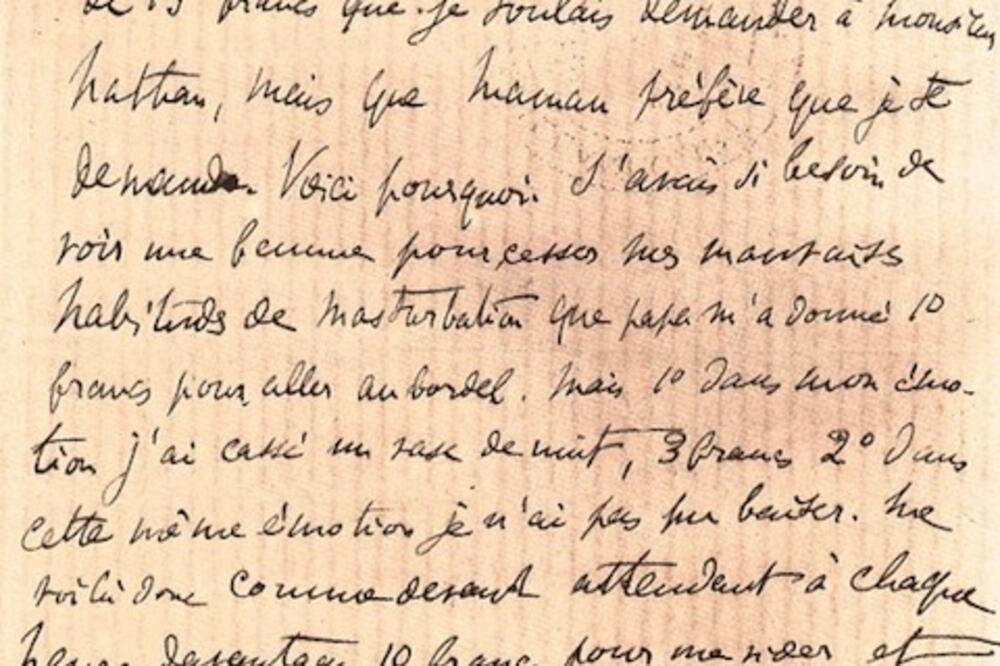 de 13 francs que je voulais demander à monsieur
Nathan, mais que Maman préfère que je te
demande. Voici pourquoi. J'avais si besoin de
voir une femme pour cesser mes mauvaises
habitudes de masturbation que papa m'a donné 10
francs pour aller au bordel. Mais 1º dans mon émo-
tion j'ai cassé un vase de nuit, 3 francs 2º dans
cette même émotion je n'ai pas pu baiser. Me
voilà donc comme devant attendant à chaque
heure davantage 10 francs pour me vider et